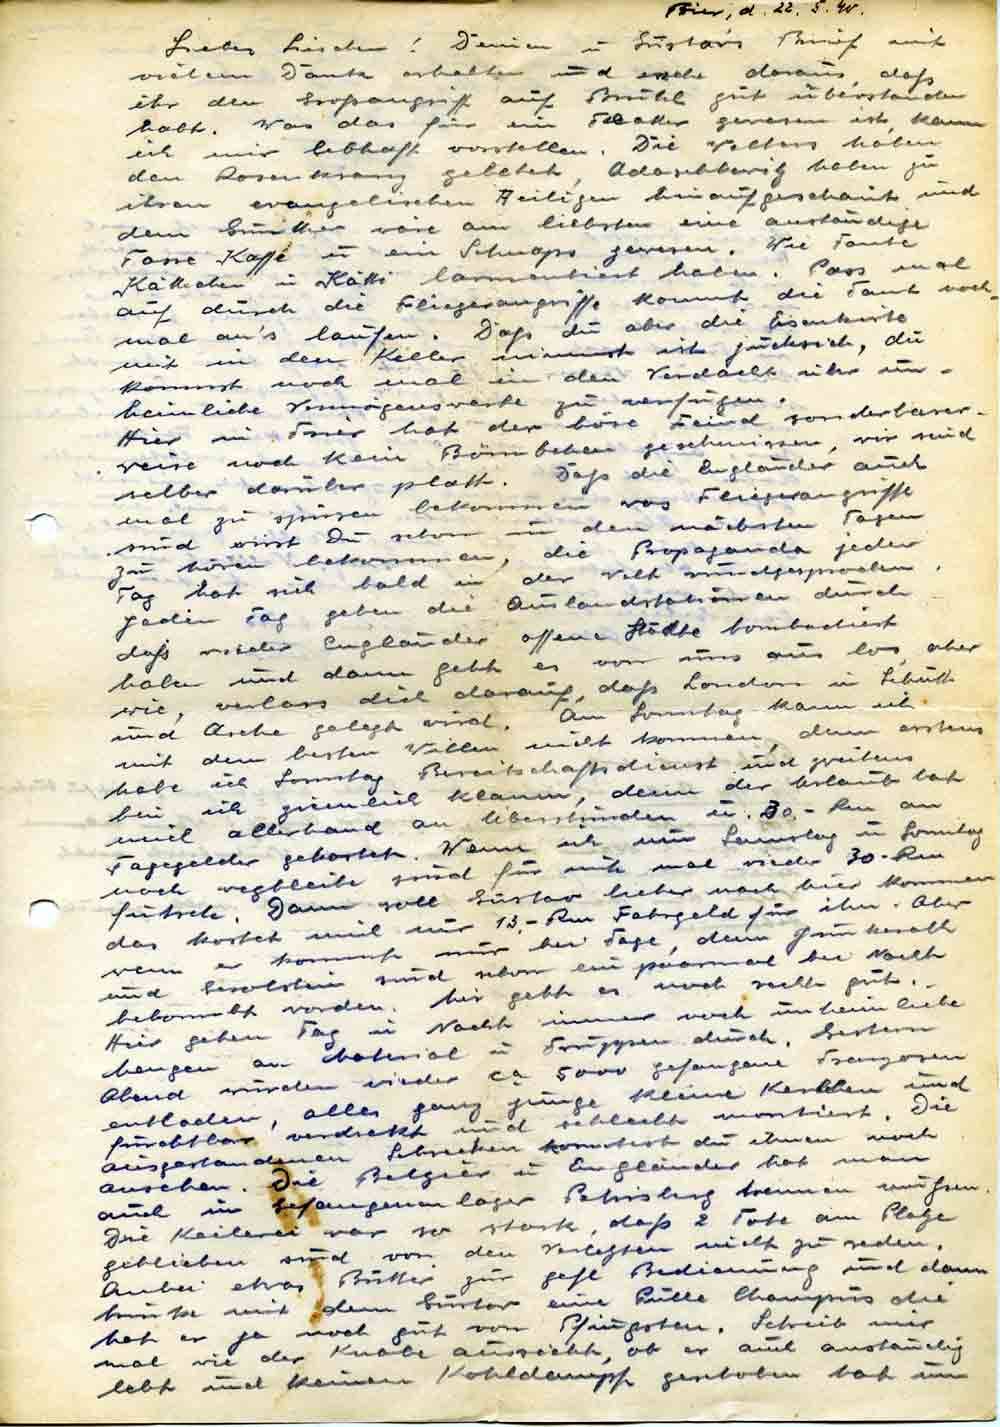 Trier, d. 22. 5. 40.
Liebes Lieschen! Deinen u Gustavs Brief mit
vielem Dank erhalten und ersehe daraus, daß
ihr den Grossangriff auf Brühl gut überstanden
habt. Was das für ein Theater gewesen ist, kann
ich mir lebhaft vorstellen. Die Welters haben
den Rosenkranz gebetet, haben zu
ihren evangelischen Heiligen hinaufgeschaut und
dem Günther wäre am liebsten eine anständige
Tasse Kaffe u ein Schnaps gewesen. Wie Tante
Käthchen u Kätti lamentiert haben. Pass mal
auf durch die Fliegerangriffe kommt die Tant noch-
mal an's laufen. Daß du aber die Eisenkiste
mit in den Keller nimmst ist , du
kommst noch mal in den Verdacht über un-
heimliche Vermögenswerte zu verfügen.
Hier in Trier hat der böse Feind sonderbarer-
weise noch kein Bömbchen geschmissen, wir sind
selber darüber platt. Daß die Engländer auch
mal zu spüren bekommen was Fliegerangriffe
sind wirst Du schon in den nächsten Tagen
zu hören bekommen, die Propaganda jeder
Tag hat sich bald in der Welt rundgesprochen.
Jeden Tag geben die Auslandstationen durch
daß wieder Engländer offene Städte bombadiert
haben und dann geht es von uns aus los, aber
wie, verlass dich darauf, daß London in Schutt
und Asche gelegt wird. Am Sonntag kann ich
mit dem besten Willen nicht kommen, denn erstens
habe ich Sonntag Bereitschaftsdienst und zweitens
bin ich ziemlich klamm, denn der Urlaub hat
mich allerhand an Überstunden u. 30,- Rm an
Tagegelder gekostet. Wenn ich nun Samstag u Sonntag
noch wegbleibe sind für mich mal wieder 30.- Rm
futsch. Dann soll Gustav lieber nach hier kommen
das kostet mich nur 13,- Rm Fahrgeld für ihn. Aber
wenn er kommt nur bei Tage, denn Jünkerath
und Gerolstein sind schon ein paarmal bei Nacht
bebombt worden. Mir geht es noch recht gut.
Hier gehen Tag u Nacht immer noch unheimliche
Mengen an Material u Truppen durch. Gestern
Abend wurden wieder ca 5000 gefangene Franzosen
entladen, alles ganz junge kleine Kerlchen und
furchtbar verdreckt und schlecht montiert. Die
ausgestandenen Schrecken konntest du ihnen noch
ansehen. Die Belgier u Engländer hat man
auch im Gefangenenlager Petrisberg trennen müssen.
Die Keilerei war so stark, daß 2 Tote am Platze
geblieben sind von den Verletzten nicht zu reden.
Anbei etwas Butter zur gefl Bedienung und dann
trinke mit dem Gustav eine Pulle Champus die
hat er ja noch gut von Pfingsten. Schreib mir
mal wie der Knabe aussieht, ob er auch anständig
lebt und keinen Kohldampf geschoben hat um